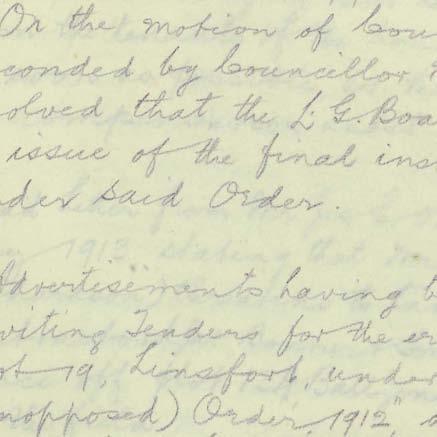 On the motion of Coun
conded by Councillor
olved that the L. G. Boa
issue of the final ins
nder said Order.
1913 stating that
Advertisements having b
viting Tenders for the er
ot 19, Linsfort, under
nopposed) Order 1912",